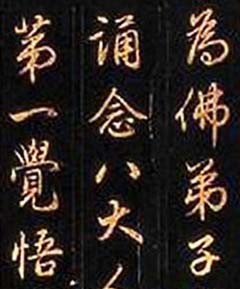 為佛弟子
誦念八大人
第一覺悟